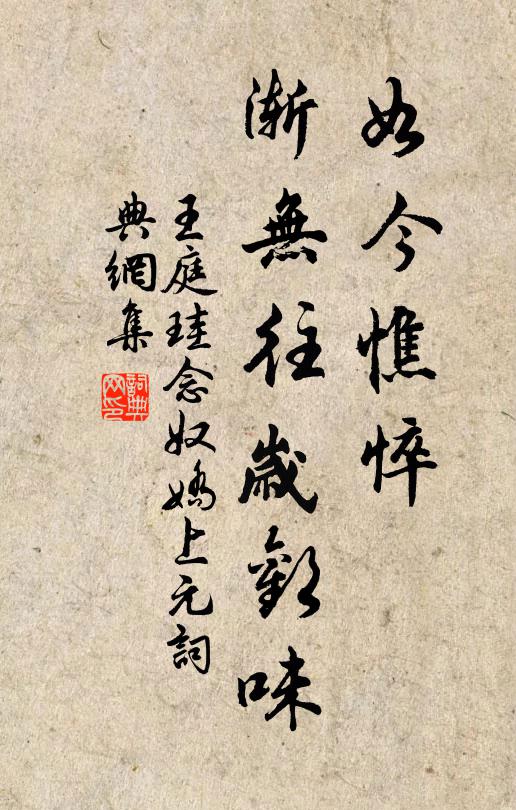 如今憔悴
漸無往歲歡味
王庭珪念奴嬌上元詞
典網集
詞典網印